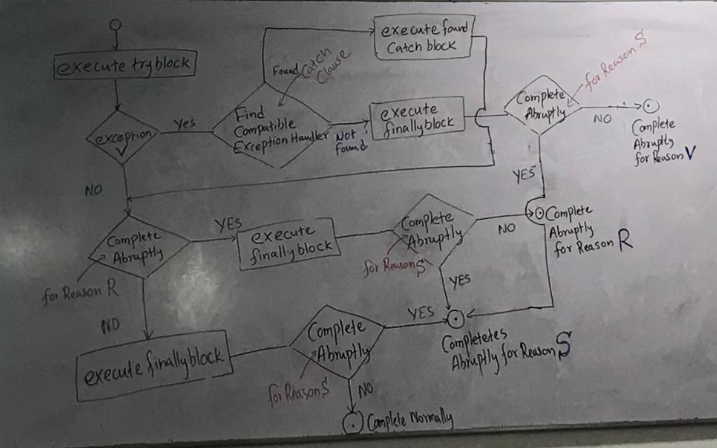 execute try block
exception
V
Yes
NO
Find
Compatible
Exception Handler
Found
Catch
Clause
execute found
Catch block
Not
Found
execute
finally block
Complete
Abruptly
for Reason S
NO
Complete
Abruptly
for Reason V
YES
Complete
Abruptly
for Reason R
YES
execute
finally block
Complete
Abruptly
for Reason S
NO
Complete
Abruptly
for Reason R
YES
NO
execute finally block
Complete
Abruptly
for Reason S
YES
Completetes
Abruptly for Reason S
NO
Complete Normally